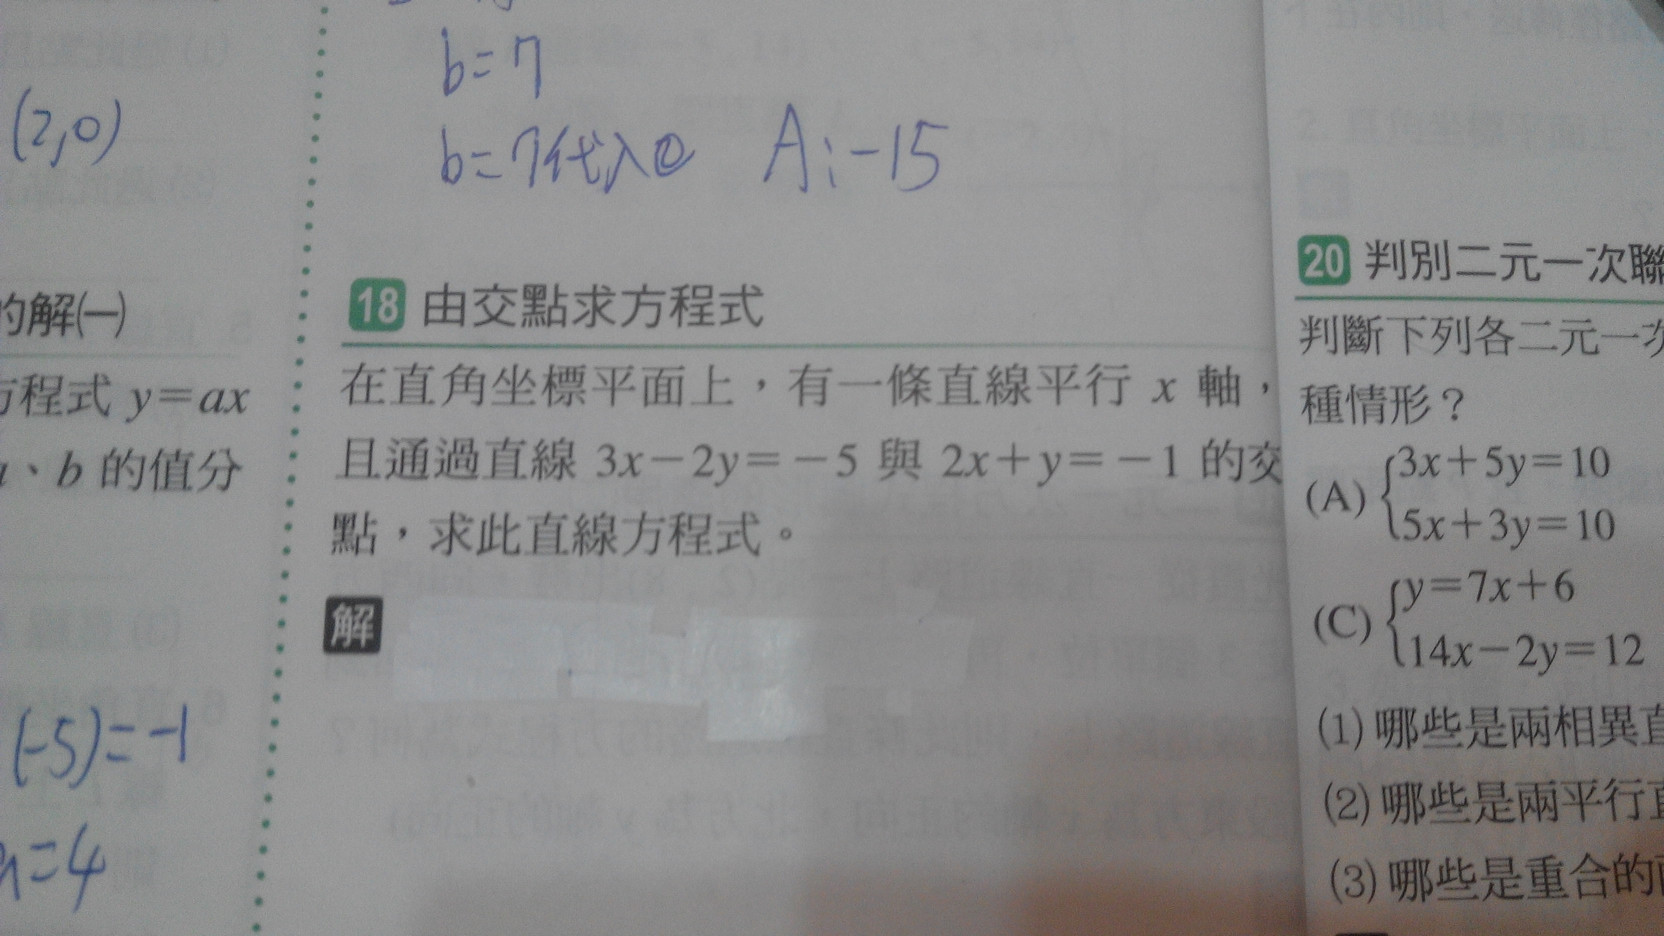 (2,0)
的解㈠
方程式 y=ax
、b 的值分
(-5)=-1
=4
b=7
b=7代入② A:-15
18 由交點求方程式
在直角坐標平面上，有一條直線平行 x 軸，
且通過直線 3x-2y=-5 與 2x+y=-1 的交
點，求此直線方程式。
解
20 判別二元一次聯
判斷下列各二元一次
種情形？
(A) {3x+5y=10
5x+3y=10
(C) {y=7x+6
14x-2y=12
(1) 哪些是兩相異直
(2) 哪些是兩平行直
(3) 哪些是重合的兩